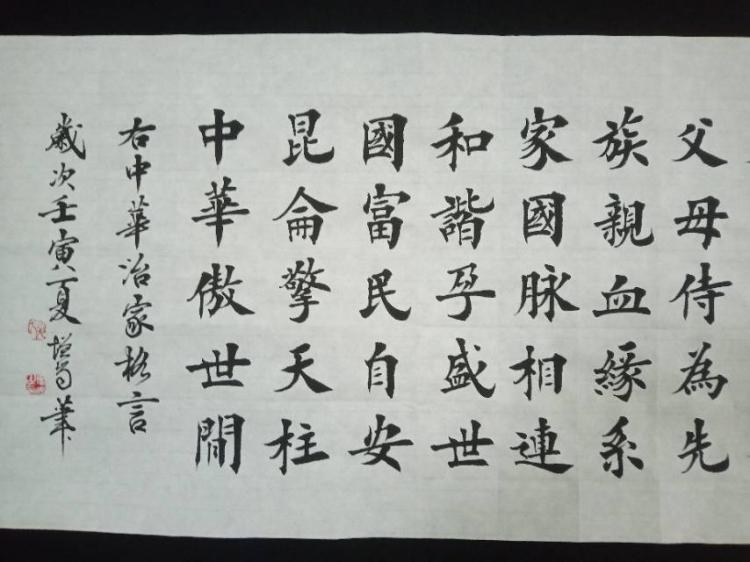 父母侍為先
族親血緣系
家國脉相連
和諧孕盛世
國富民自安
昆侖擎天柱
中華傲世間
右中華治家格言
歲次壬寅夏增芳筆